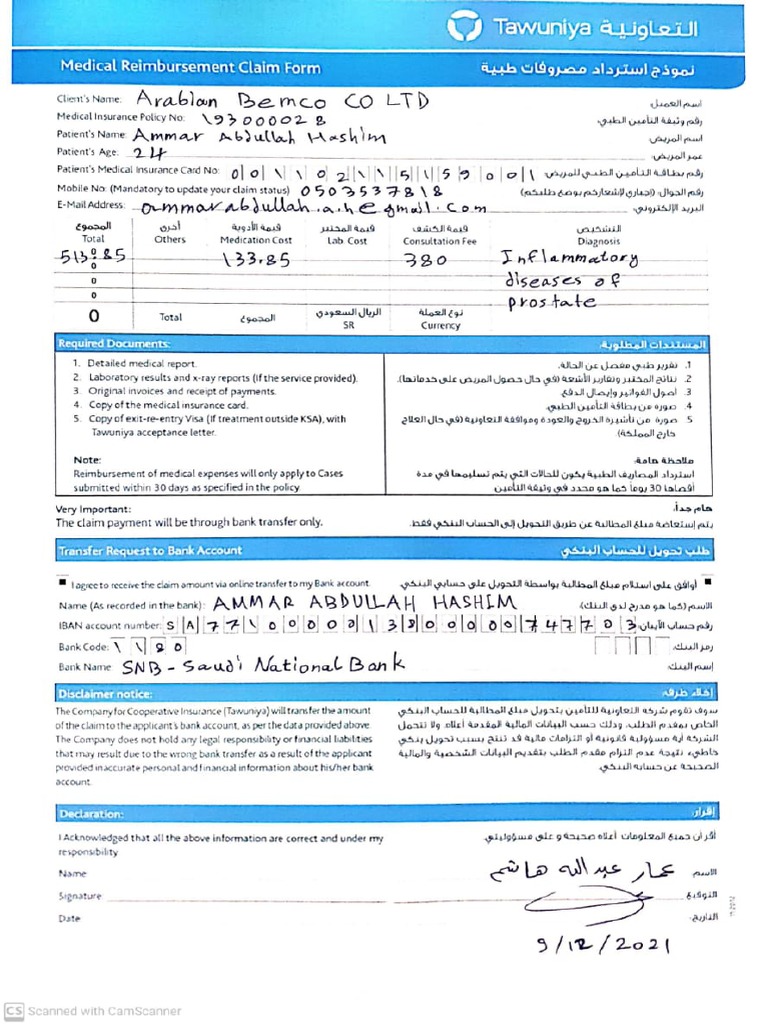 Tawuniya التعاونية
Medical Reimbursement Claim Form نموذج استرداد مصروفات طبية
Client's Name: Arabian Bemco CO LTD اسم العميل:
Medical Insurance Policy No: 193000028 رقم وثيقة التأمين الطبي:
Patient's Name: Ammar Abdullah Hashim اسم المريض:
Patient's Age: 24 عمر المريض:
Patient's Medical Insurance Card No: 0 0 1 1 0 2 1 1 5 1 5 9 0 0 1 رقم بطاقة التأمين الطبي للمريض:
Mobile No: (Mandatory to update your claim status) 0503537818 رقم الجوال: (اجباري لإشعاركم بوضع طلبكم)
E-Mail Address: ammarabdullah.a.h@gmail.com البريد الإلكتروني:
المجموع أخرى قيمة الأدوية قيمة المختبر قيمة الكشف التشخيص
Total Others Medication Cost Lab. Cost Consultation Fee Diagnosis
513.85 133.85 380 Inflammatory
0
0 diseases of
0 prostate
0 Total المجموع الريال السعودي SR نوع العملة Currency
Required Documents: المستندات المطلوبة:
1. Detailed medical report. 1. تقرير طبي مفصل عن الحالة.
2. Laboratory results and x-ray reports (if the service provided). 2. نتائج المختبر وتقارير الأشعة (في حال حصول المريض على خدماتها).
3. Original invoices and receipt of payments. 3. أصول الفواتير وإيصال الدفع.
4. Copy of the medical insurance card. 4. صورة من بطاقة التأمين الطبي.
5. Copy of exit-re-entry Visa (If treatment outside KSA), with 5. صورة من تأشيرة الخروج والعودة وموافقة التعاونية (في حال العلاج
Tawuniya acceptance letter. خارج المملكة).
Note: ملاحظة هامة:
Reimbursement of medical expenses will only apply to Cases استرداد المصاريف الطبية يكون للحالات التي يتم تسليمها في مدة
submitted within 30 days as specified in the policy. أقصاها 30 يوماً كما هو محدد في وثيقة التأمين
Very Important: هام جداً:
The claim payment will be through bank transfer only. يتم إستعاضة مبلغ المطالبة عن طريق التحويل إلى الحساب البنكي فقط.
Transfer Request to Bank Account طلب تحويل للحساب البنكي
I agree to receive the claim amount via online transfer to my Bank account. أوافق على استلام مبلغ المطالبة بواسطة التحويل على حسابي البنكي.
Name (As recorded in the bank): AMMAR ABDULLAH HASHIM الاسم (كما هو مدرج لدى البنك):
IBAN account number: S A 7 7 1 0 0 0 0 1 3 8 0 0 0 0 0 7 4 7 7 0 3 رقم حساب الأيبان:
Bank Code: 1 1 8 0 رمز البنك:
Bank Name: SNB - Saudi National Bank إسم البنك:
Disclaimer notice: إخلاء طرف:
The Company for Cooperative Insurance (Tawuniya) will transfer the amount سوف تقوم شركة التعاونية للتأمين بتحويل مبلغ المطالبة للحساب البنكي
of the claim to the applicant's bank account, as per the data provided above. الخاص بمقدم الطلب، وذلك حسب البيانات المالية المقدمة أعلاه. ولا تتحمل
The Company does not hold any legal responsibility or financial liabilities الشركة أية مسؤولية قانونية أو التزامات مالية قد تنتج بسبب تحويل بنكي
that may result due to the wrong bank transfer as a result of the applicant خاطيء نتيجة عدم التزام مقدم الطلب بتقديم البيانات الشخصية والمالية
provided inaccurate personal and financial information about his/her bank الصحيحة عن حسابه البنكي.
account.
Declaration: إقرار:
I Acknowledged that all the above information are correct and under my أقر أن جميع المعلومات أعلاه صحيحة و على مسؤوليتي.
responsibility
Name عمار عبدالله هاشم الاسم
Signature التوقيع
Date التاريخ:
9/12/2021
CS Scanned with CamScanner